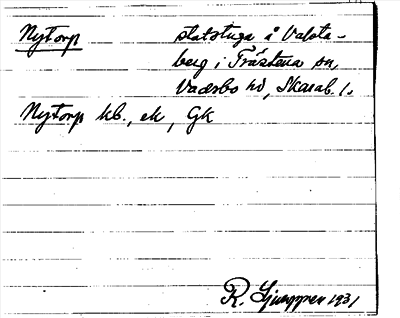 Nytorp statstuga å Valsta-
berg i Fråstena sn,
Vadsbo hd, Skarab. l.
Nytorp kb., ek, GK
R. Ljunggren 1931